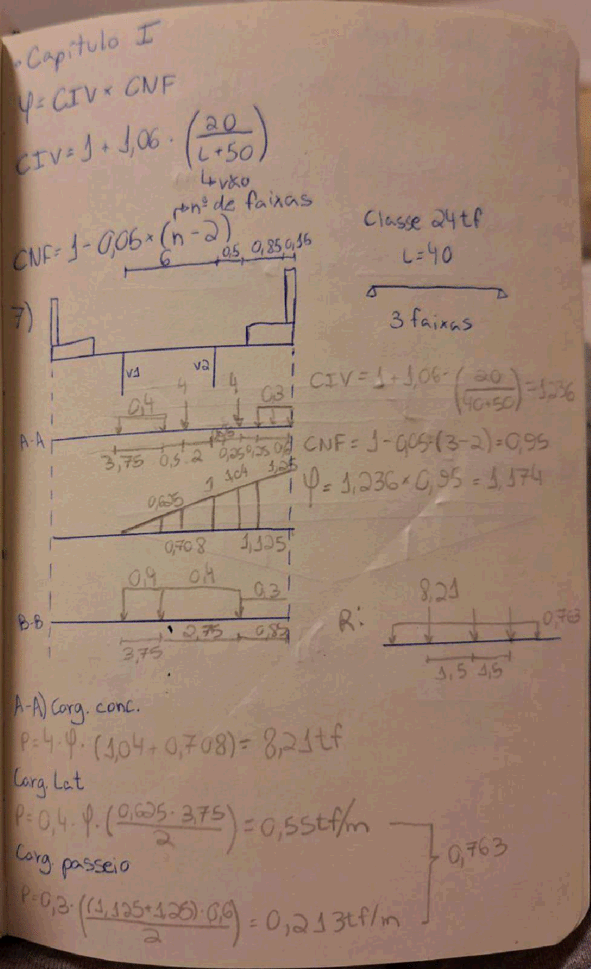 • Capítulo I
φ = CIV × CNF
CIV = 1 + 1,06 · (20 / (L+50))
↳ vão
↱ nº de faixas
CNF = 1 - 0,06 × (n - 2)
6 0,5 0,85 0,15
Classe 24tf
L=40
3 faixas
7)
V1 V2
CIV = 1 + 1,06 · (20 / (40+50)) = 1,236
0,4 4 4 0,3
A-A
3,75 0,5 2 0,25 0,25 0,6
CNF = 1 - 0,05·(3-2) = 0,95
φ = 1,236 × 0,95 = 1,174
0,625 1 1,04 1,25
0,708 1,125
0,4 0,4 0,3
B-B
3,75 2,75 0,85
R:
8,21
0,763
1,5 1,5
A-A) Carg. conc.
P = 4 · φ · (1,04 + 0,708) = 8,21tf
Carg. Lat
P = 0,4 · φ · (0,625 · 3,75 / 2) = 0,55tf/m
0,763
Carg. passeio
P = 0,3 · ((1,125+1,25) · 0,6 / 2) = 0,213tf/m